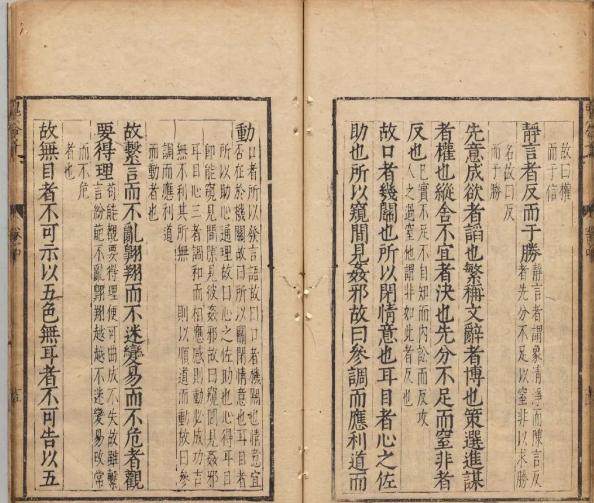 故曰權
而于信
靜言者反而于勝 靜言者謂象清淨而陳言反
者先分不足以窒非以求勝
名故曰反
而于勝
先意成欲者謟也繁稱文辭者博也策選進謀
者權也縱舍不宜者決也先分不足而窒非者
反也 已實不足不自知而內訟而反攻
人之過窒他謂非如此者反也
故口者幾關也所以閉情意也耳目者心之佐
助也所以窺間見姦邪故曰參調而應利道而
動 口者所以發言語故曰口者機關也情意宜
否在於機關故曰所以關閉情意也耳目者
所以助心通理故曰心之佐助也心得耳目
即能窺見間隙見彼姦邪故曰窺間見姦邪
耳目心三者調和而相應感則動必成功吉
無不利其所無 則以順道而動故曰參
調而應利道
而動者也
故繫言而不亂翱翔而不迷變易而不危者觀
要得理 苟能覩要得理便可曲成不失故雖繫
言紛葩不亂翱翔越越不迷變易改常
而不危
者也
故無目者不可示以五色無耳者不可告以五